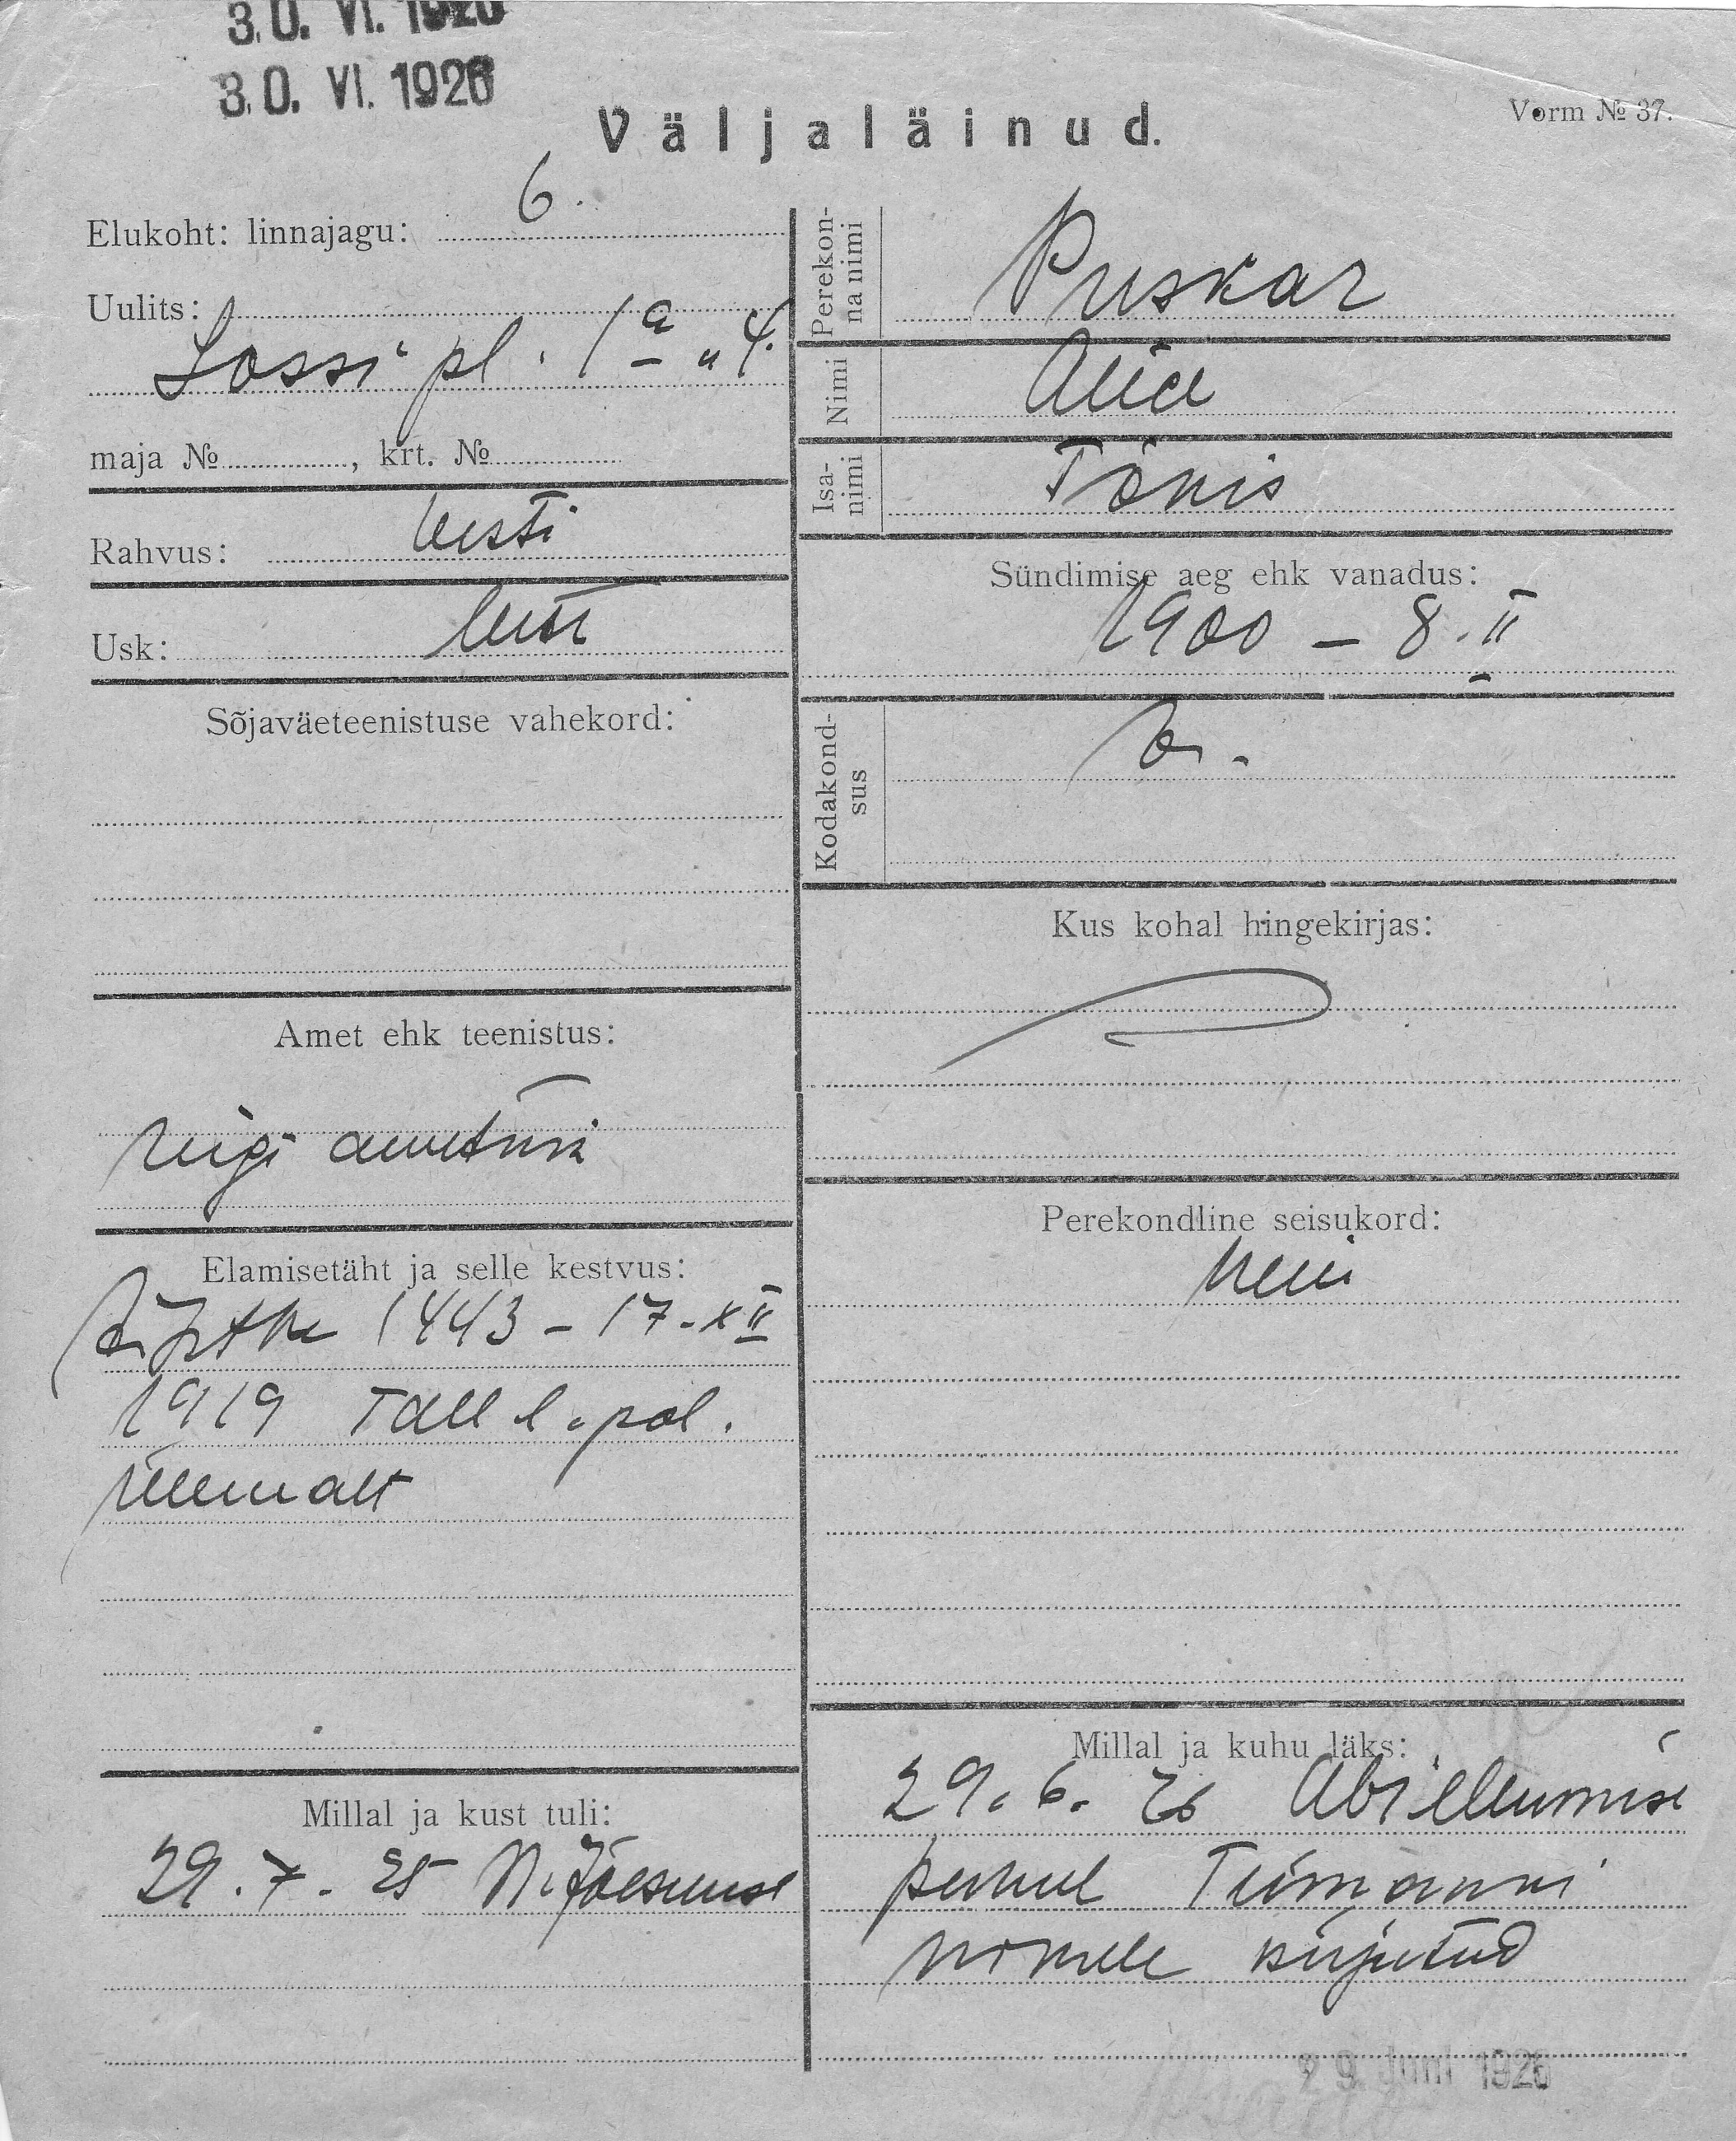 30. VI. 1926
30. VI. 1926
Väljaläinud.
Vorm № 37.
Elukoht: linnajagu: 6.
Uulits:
Lossi pl. 1a - 4.
maja №, krt. №
Rahvus: eesti
Usk: luter
Sõjaväeteenistuse vahekord:
Amet ehk teenistus:
riigi ametnik
Elamisetäht ja selle kestvus:
1443 - 17. XII
1919 Tall. l. pol.
ülemalt
Millal ja kust tuli:
29. 7. 25 N. Jõesuust
Perekon-
na nimi
Puskar
Nimi
Alice
Isa-
nimi
Tõnis
Sündimise aeg ehk vanadus:
1900 - 8. II
Kodakond-
sus
Kus kohal hingekirjas:
Perekondline seisukord:
neiu
Millal ja kuhu läks:
29. 6. 26 Abiellumise
puhul Tiimanni
nimele kirjutud
29. Juni 1926